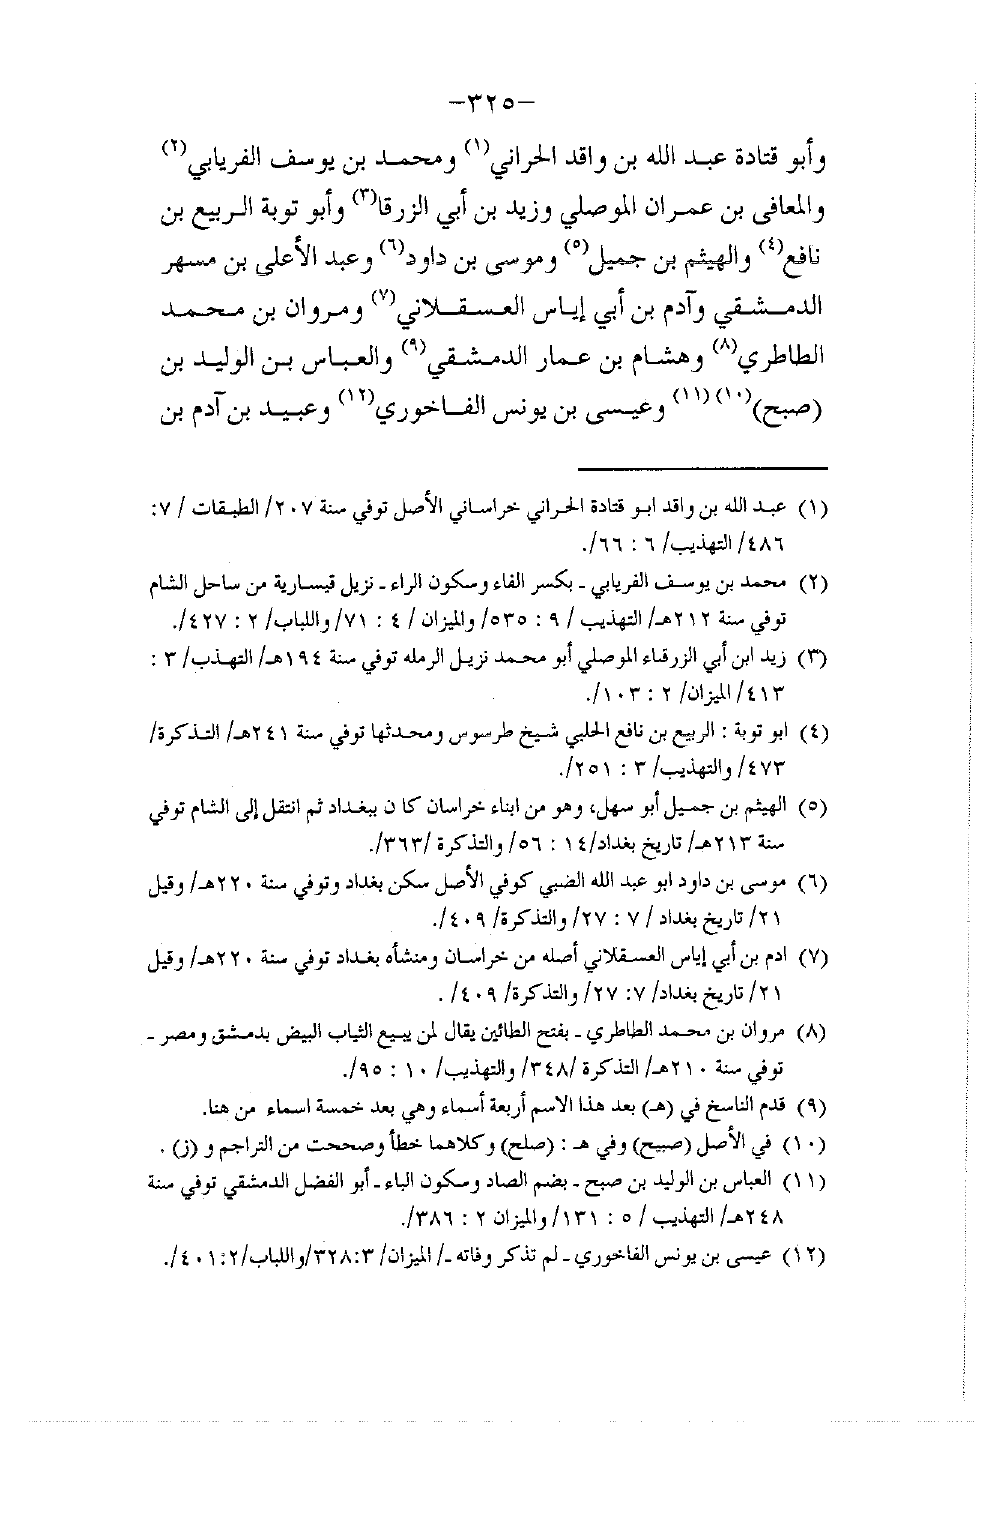 -٣٢٥-
وأبو قتادة عبد الله بن واقد الحراني(١) ومحمد بن يوسف الفريابي(٢)
والمعافى بن عمران الموصلي وزيد بن أبي الزرقا(٣) وأبو توبة الربيع بن
نافع(٤) والهيثم بن جميل(٥) وموسى بن داود(٦) وعبد الأعلى بن مسهر
الدمشقي وآدم بن أبي إياس العسقلاني(٧) ومروان بن محمد
الطاطري(٨) وهشام بن عمار الدمشقي(٩) والعباس بن الوليد بن
(صبح)(١٠)(١١) وعيسى بن يونس الفاخوري(١٢) وعبيد بن آدم بن
(١) عبد الله بن واقد ابو قتادة الحراني خراساني الأصل توفي سنة ٢٠٧/ الطبقات / ٧:
٤٨٦/ التهذيب/ ٦ : ٦٦/.
(٢) محمد بن يوسف الفريابي ـ بكسر الفاء وسكون الراء ـ نزيل قيسارية من ساحل الشام
توفي سنة ٢١٢هـ/ التهذيب / ٩ : ٥٣٥/ والميزان / ٤ : ٧١/ واللباب/ ٢ : ٤٢٧/.
(٣) زيد ابن أبي الزرقاء الموصلي أبو محمد نزيل الرمله توفي سنة ١٩٤هـ/ التهذب/ ٣ :
٤١٣/ الميزان/ ٢ : ١٠٣/.
(٤) ابو توبة : الربيع بن نافع الحلبي شيخ طرسوس ومحدثها توفي سنة ٢٤١هـ/ التذكرة/
٤٧٣/ والتهذيب/ ٣ : ٢٥١/.
(٥) الهيثم بن جميل أبو سهل، وهو من ابناء خراسان كا ن ببغداد ثم انتقل إلى الشام توفي
سنة ٢١٣هـ/ تاريخ بغداد/١٤ : ٥٦/ والتذكرة /٣٦٣/.
(٦) موسى بن داود ابو عبد الله الضبي كوفي الأصل سكن بغداد وتوفي سنة ٢٢٠هـ/ وقيل
٢١/ تاريخ بغداد / ٧ : ٢٧/ والتذكرة/ ٤٠٩/.
(٧) ادم بن أبي إياس العسقلاني أصله من خراسان ومنشأه بغداد توفي سنة ٢٢٠هـ/ وقيل
٢١/ تاريخ بغداد/ ٧: ٢٧/ والتذكرة/ ٤٠٩/ .
(٨) مروان بن محمد الطاطري ـ بفتح الطائين يقال لمن يبيع الثياب البيض بدمشق ومصر ـ
توفي سنة ٢١٠هـ/ التذكرة /٣٤٨/ والتهذيب/ ١٠ : ٩٥/.
(٩) قدم الناسخ في (هـ) بعد هذا الاسم أربعة أسماء وهي بعد خمسة اسماء من هنا.
(١٠) في الأصل (صبيح) وفي هـ : (صلح) وكلاهما خطأ وصححت من التراجم و (ز) .
(١١) العباس بن الوليد بن صبح ـ بضم الصاد وسكون الباء ـ أبو الفضل الدمشقي توفي سنة
٢٤٨هـ/ التهذيب / ٥ : ١٣١/ والميزان ٢ : ٣٨٦/.
(١٢) عيسى بن يونس الفاخوري ـ لم تذكر وفاته ـ/ الميزان/ ٣٢٨:٣/واللباب/٤٠١:٢/.